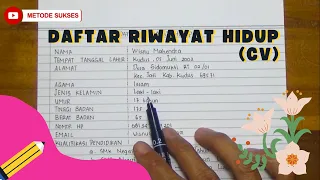 METODE SUKSES
DAFTAR RIWAYAT HIDUP
(CV)
NAMA : Wisnu Mahendra
TEMPAT TANGGAL LAHIR : Kudus, 01 Juni 2003
ALAMAT : Desa Sidomulyo RT. 02/01
Kec. Jati Kab. Kudus
AGAMA : Islam
JENIS KELAMIN : Laki - laki
UMUR : 17
TINGGI BADAN
BERAT BADAN
NOMOR HP
EMAIL
KUALIFIKASI PENDIDIKAN